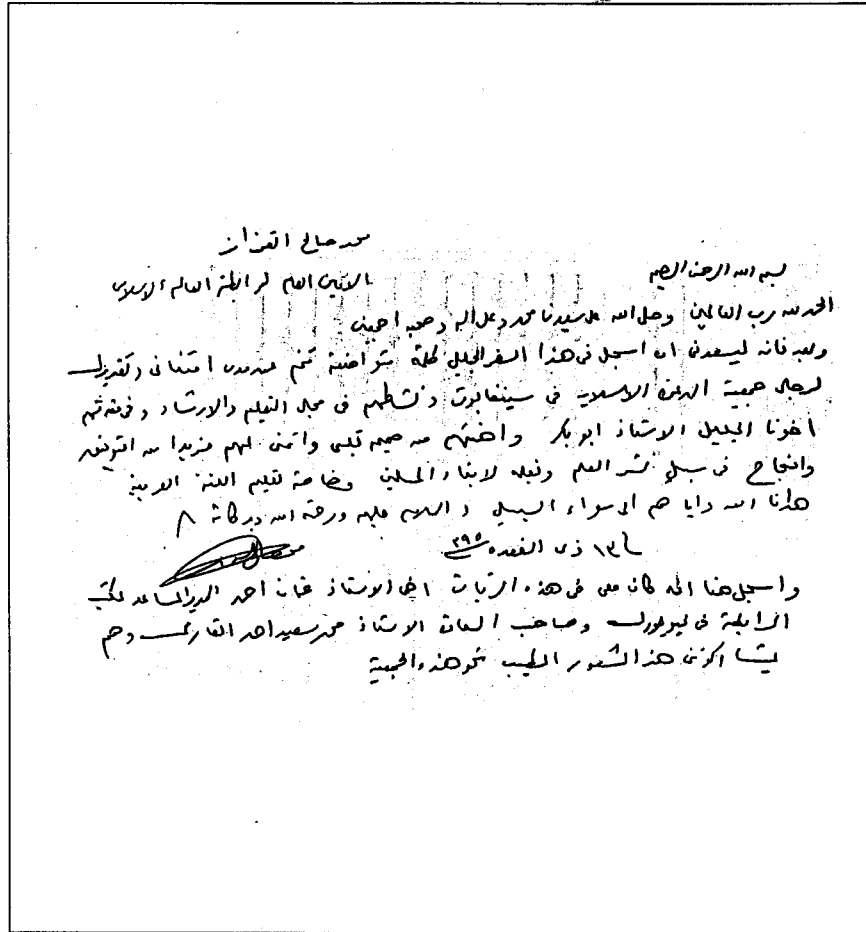 محمد صالح القزاز
الامين العام لرابطة العالم الاسلامى
بسم الله الرحمن الرحيم
الحمد لله رب العالمين وصلى الله على سيدنا محمد وعلى اله وصحبه اجمعين
وبعد فانه ليسعدنى ان اسجل فى هذا السفر الجليل كلمة متواضعة تنم عن مدى امتنانى وتقديرى
لرجال جمعية الدعوة الاسلامية فى سينغابوت ونشاطهم فى مجال التعليم والارشاد وفى مقدمتهم
اخونا الجليل الاستاذ ابو بكر واهنئهم من صميم قلبى واتمنى لهم مزيدا من التوفيق
والنجاح فى سبيل نشر العلم ونبله لابناء المسلمين وخاصة تعليم اللغة العربية
هدانا الله واياهم الى سواء السبيل والسلام عليكم ورحمة الله وبركاته
١٣ ذى القعده ٣٩٥
واسجل هنا انه كان معى فى هذه الزيارات اخى الاستاذ احمد المدير المساعد لمكتب
الرابطة فى نيويورك وصاحب السعادة الاستاذ محمد سعيد احمد القارئ وهم
يشاركوننى هذا الشعور الطيب نحو هذه الجمعية